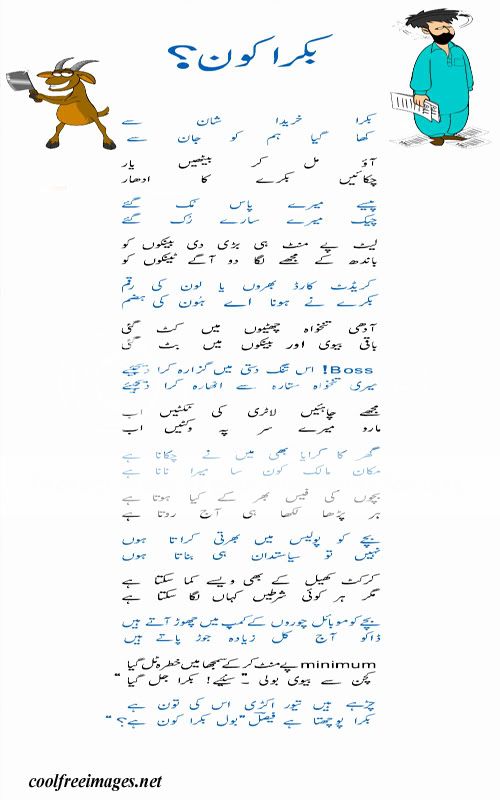 بکرا کون؟
بکرا خریدا شان سے
کھا گیا ہم کو جان سے
آؤ مل کر بیٹھیں یار
چکائیں بکرے کا ادھار
پیسے میرے پاس تک گئے
چیک میرے سارے رُک گئے
لیٹ پے منٹ ہی بڑی دی بینکوں کو
باندھ کے مجھے لگا دو آگے ٹینکوں کو
کریڈٹ کارڈ بھروں یا لون کی رقم
بکرے نے ہونا اے ہُون کی ہضم
آدھی تنخواہ چھٹیوں میں کٹ گئی
باقی بیوی اور بینکوں میں بٹ گئی
Boss! اس تنگ دستی میں گزارہ کرا دیجئے
میری تنخواہ ستارہ سے اٹھارہ کرا دیجئے
مجھے چاہئیں لاٹری کی ٹکٹیں اب
مارو میرے سر پہ وکٹیں اب
گھر کا کرایا بھی میں نے چکانا ہے
مکان مالک کون سا میرا نانا ہے
بچوں کی فیس بھر کے کیا ہوتا ہے
ہر پڑھا لکھا ہی آج روتا ہے
بچے کو پولیس میں بھرتی کراتا ہوں
نہیں تو سیاستدان ہی بناتا ہوں
کرکٹ کھیل کے بھی ویسے کما سکتا ہے
مگر ہر کوئی شرطیں کہاں لگا سکتا ہے
بچے کو موبائل چوروں کے کیمپ میں چھوڑ آتے ہیں
ڈاکو آج کل زیادہ جوڑ پاتے ہیں
minimum پے منٹ کر کے سمجھا میں خطرہ ٹل گیا
کچن سے بیوی بولی "سنیے! بکرا جل گیا"
چڑھے ہیں تیور اکڑی اس کی ٹون ہے
بکرا پوچھتا ہے فیصل "بول بکرا کون ہے؟"
coolfreeimages.net